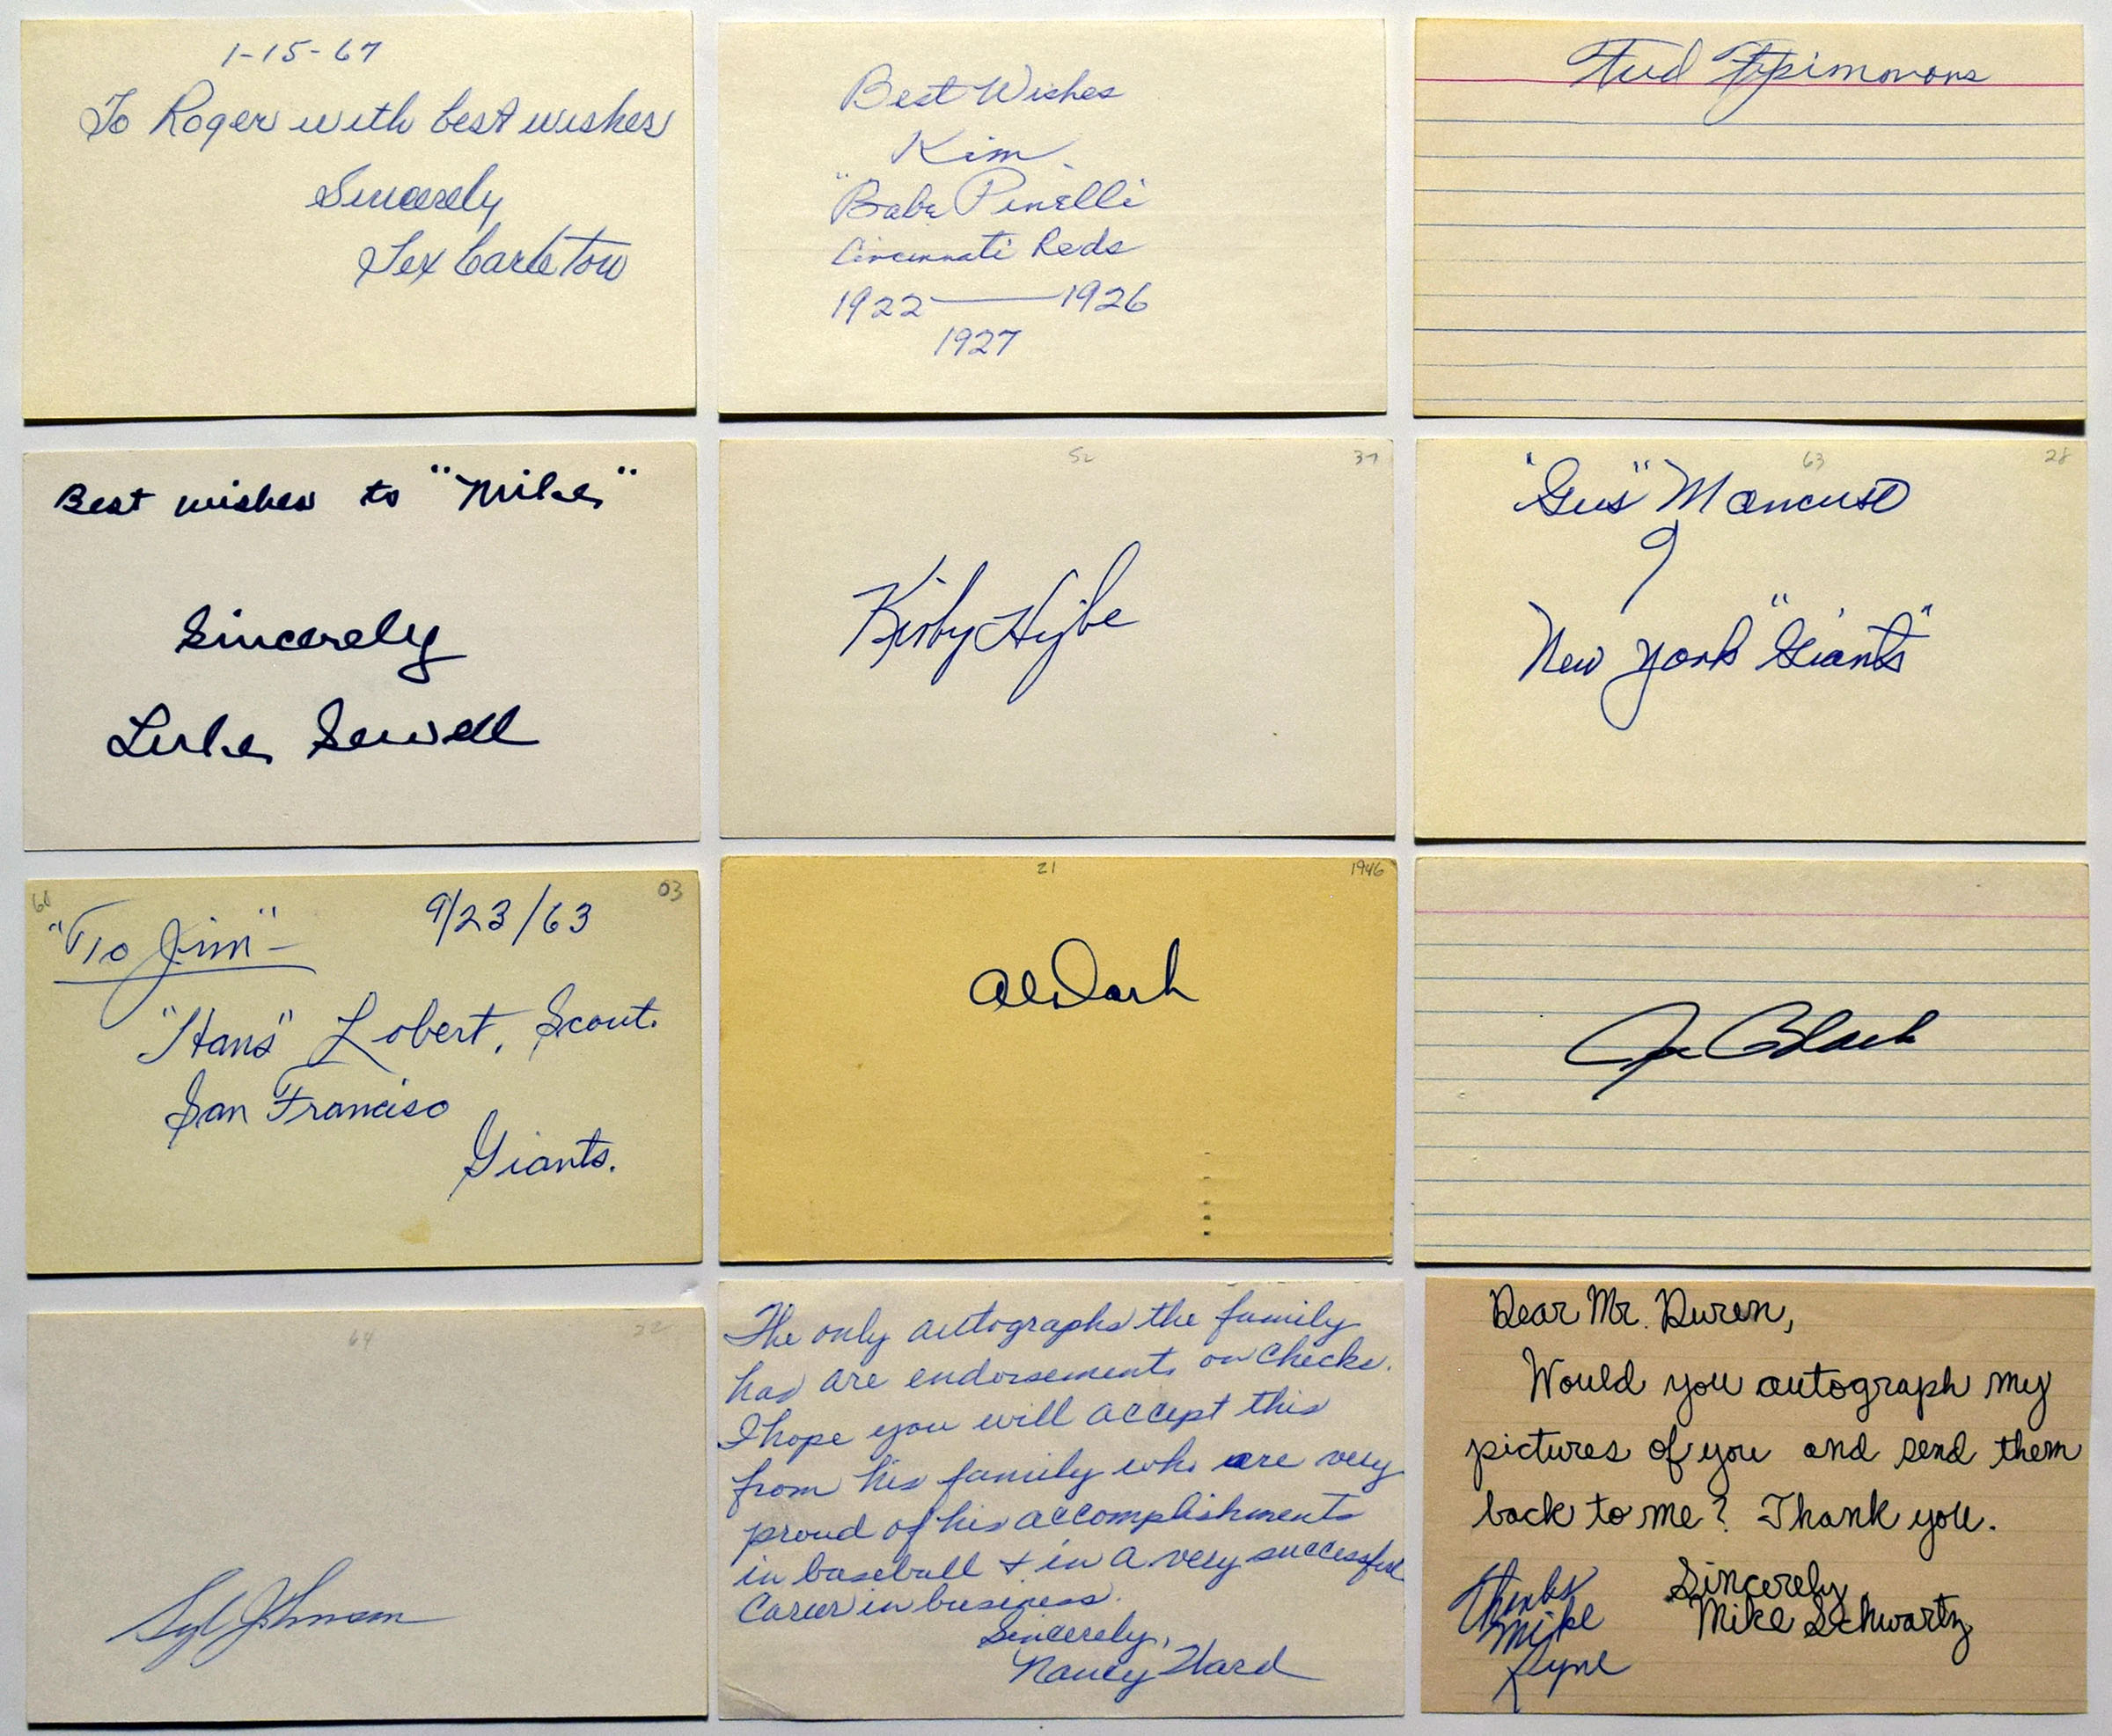 1-15-67
To Roger with best wishes
Sincerely
Tex Carleton
Best Wishes
Kim
"Babe Pinelli
Cincinnati Reds
1922 — 1926
1927
Fred Fitzsimmons
Best wishes to "Mike"
Sincerely
Luke Sewell
52 37
Kirby Higbe
63 28
"Gus" Mancuso
9
New York "Giants"
60 03
"To Jim" - 9/23/63
"Hans" Lobert, Scout.
San Franciso
Giants.
21 1946
Al Dark
Joe Black
64 22
Syl Johnson
The only autographs the family
has are endorsements on checks.
I hope you will accept this
from his family who are very
proud of his accomplishments
in baseball + in a very successful
career in business.
Sincerely,
Nancy Ward
Dear Mr. Duren,
Would you autograph my
pictures of you and send them
back to me? Thank you.
Sincerely
Mike Schwartz
Thanks
Mike
Ryne